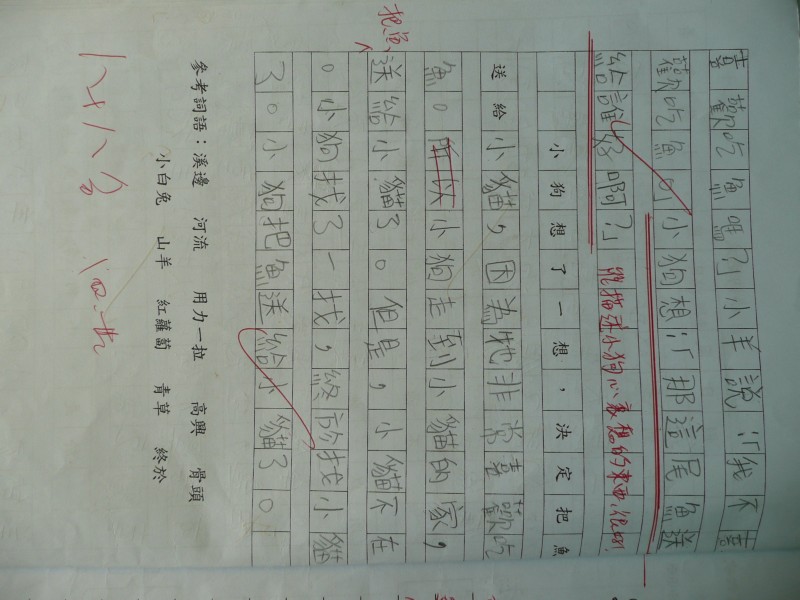 喜歡吃魚嗎?」小羊說:「我不喜
歡吃魚。」小狗想:「那這尾魚送
給誰好啊?」 能描述小狗心裏想的東西,很好!
小狗想了一想,決定把魚
送給小貓,因為牠非常喜歡吃
魚。小狗走到小貓的家,
把魚
送給小貓了。但是,小貓不在
。小狗找了一找,終於找小貓
了。小狗把魚送給小貓了。
參考詞語:溪邊 河流 用力一拉 高興 骨頭
小白兔 山羊 紅蘿蔔 青草 終於